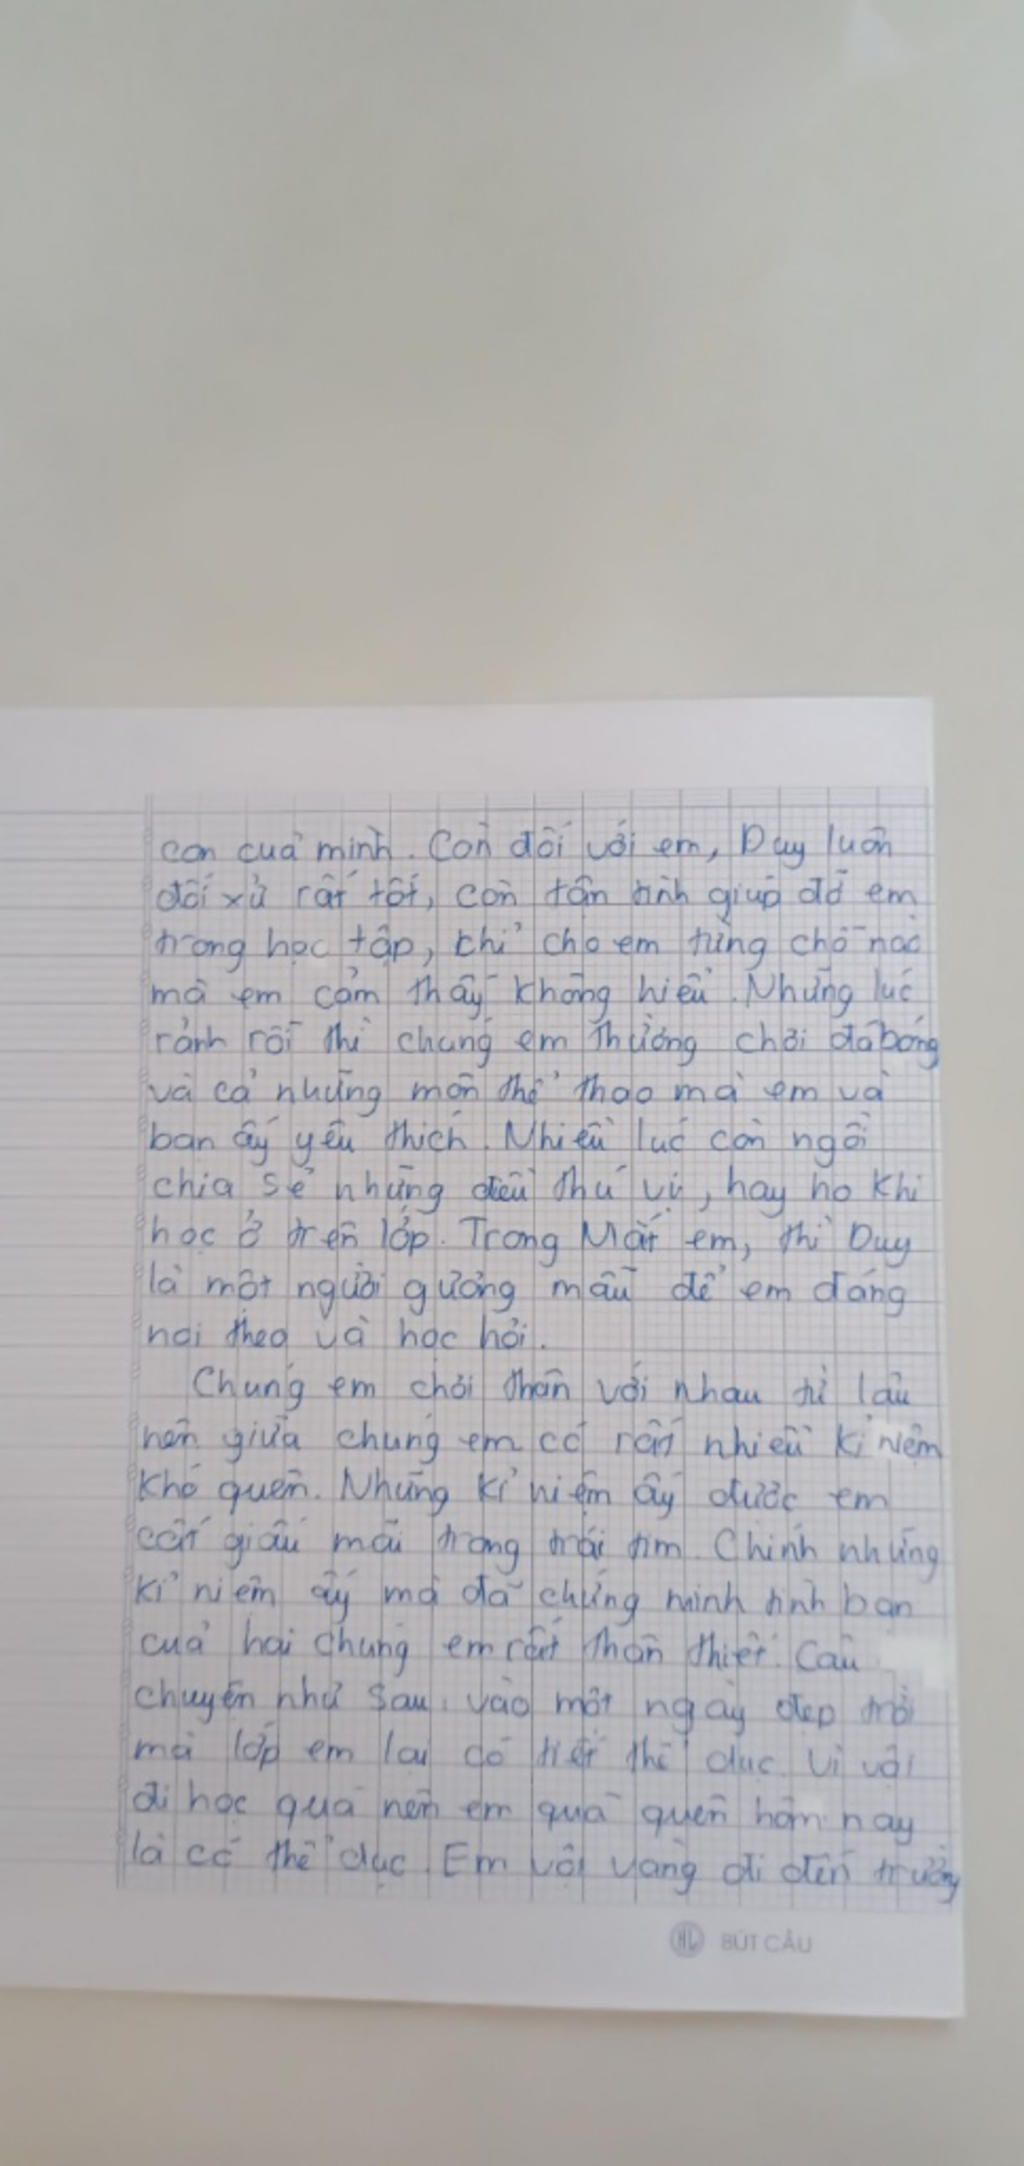 con của mình. Còn đối với em, Duy luôn
đối xử rất tốt, còn tận tình giúp đỡ em
trong học tập, chỉ cho em từng chỗ nào
mà em cảm thấy không hiểu. Những lúc
rảnh rỗi thì chúng em thường chơi đá bóng
và cả những môn thể thao mà em và
bạn ấy yêu thích. Nhiều lúc còn ngồi
chia sẻ những điều thú vị, hay ho khi
học ở trên lớp. Trong Mắt em, thì Duy
là một người gương mẫu để em đáng
noi theo và học hỏi.
Chúng em chơi thân với nhau từ lâu
nên giữa chúng em có rất nhiều kỉ niệm
khó quên. Những kỉ niệm ấy được em
cất giấu mãi trong trái tim. Chính những
kỉ niệm ấy mà đã chứng minh tình bạn
của hai chúng em rất thân thiết. Câu
chuyện như sau, vào một ngày đẹp trời
mà lớp em lại có tiết thể dục. Vì vội
đi học quá nên em quá quên hôm nay
là có thể dục. Em vội vàng đi đến trường
HL BÚT CÂU